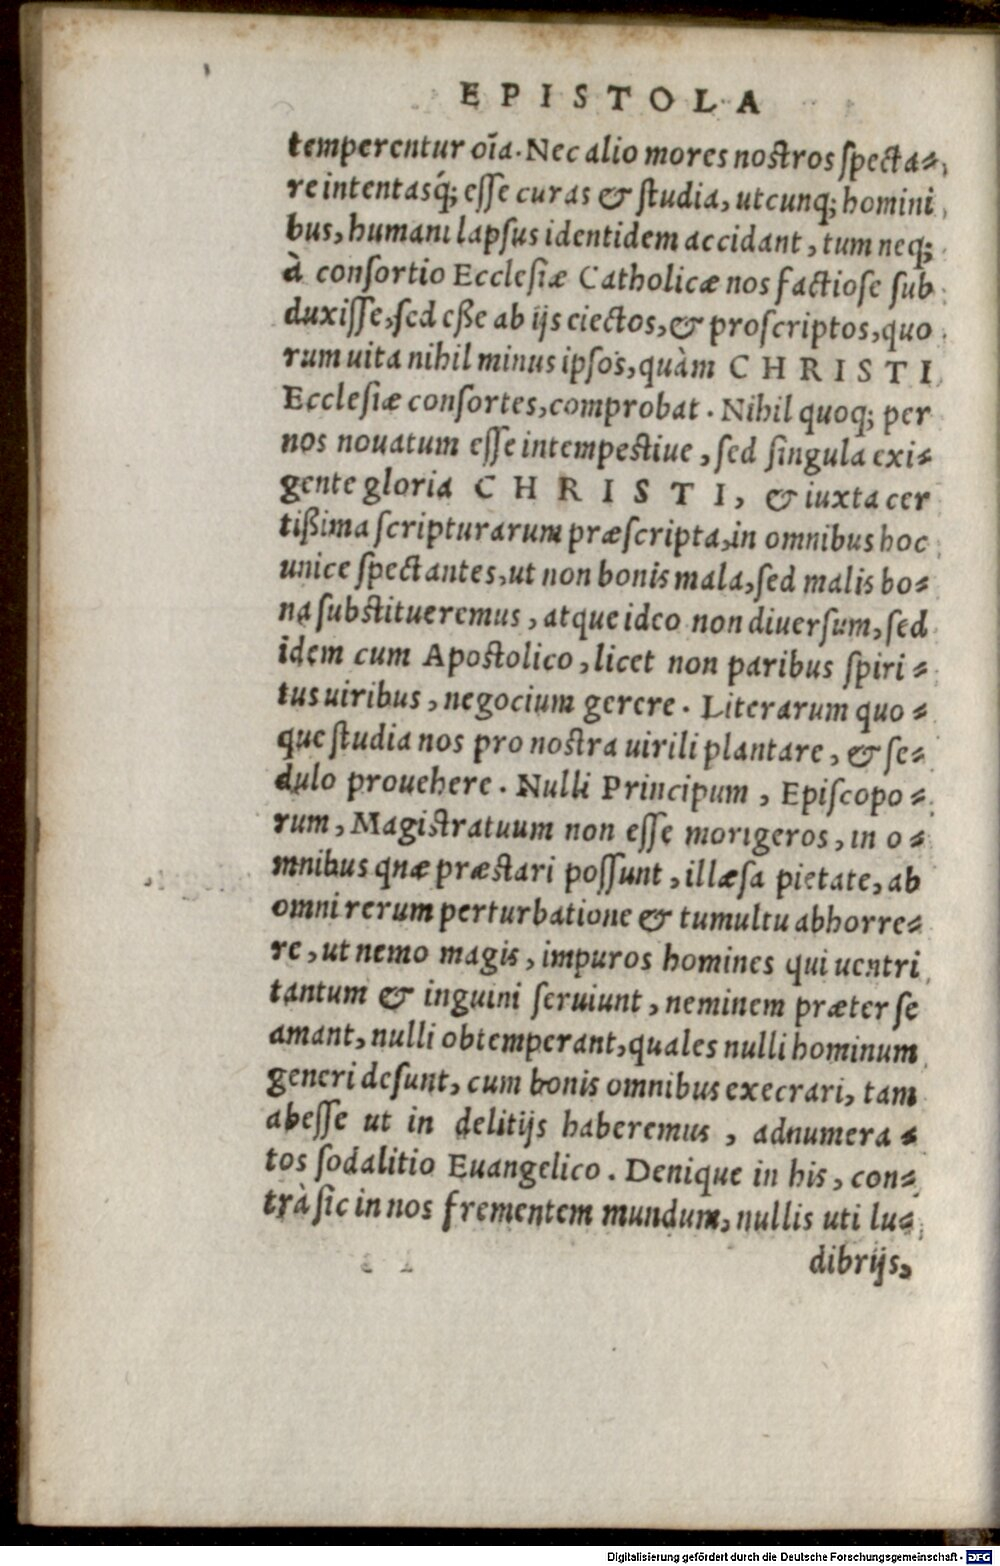 EPISTOLA
temperentur oĩa. Nec alio mores nostros specta⸗
re intentasq́; esse curas & studia, utcunq; homini
bus, humani lapsus identidem accidant, tum neq;
à consortio Ecclesiæ Catholicæ nos factiose sub
duxisse, sed eße ab ijs eiectos, & proscriptos, quo
rum uita nihil minus ipsos, quàm CHRISTI
Ecclesiæ consortes, comprobat. Nihil quoq; per
nos nouatum esse intempestiue, sed singula exi⸗
gente gloria CHRISTI, & iuxta cer
tißima scripturarum præscripta, in omnibus hoc
unice spectantes, ut non bonis mala, sed malis bo⸗
na substitueremus, atque ideo non diuersum, sed
idem cum Apostolico, licet non paribus spiri⸗
tus uiribus, negocium gerere. Literarum quo⸗
que studia nos pro nostra uirili plantare, & se⸗
dulo prouehere. Nulli Principum, Episcopo⸗
rum, Magistratuum non esse morigeros, in o⸗
mnibus qnæ præstari possunt, illæsa pietate, ab
omni rerum perturbatione & tumultu abhorre⸗
re, ut nemo magis, impuros homines qui uentri
tantum & inguini seruiunt, neminem præter se
amant, nulli obtemperant, quales nulli hominum
generi desunt, cum bonis omnibus execrari, tam
abesse ut in delitijs haberemus, adnumera⸗
tos sodalitio Euangelico. Denique in his, con⸗
trà sic in nos frementem mundum, nullis uti lu⸗
dibrijs,
Digitalisierung gefördert durch die Deutsche Forschungsgemeinschaft - DFG